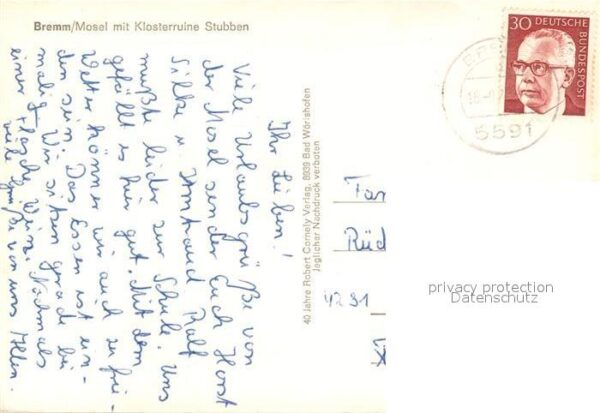 Bremm/Mosel mit Klosterruine Stubben
Ihr Lieben!
Viele Urlaubsgrüße von
der Mosel senden Euch Horst
Silke u. Ralf
mußte leider zur Schule. Uns
gefällt es hier gut. Mit dem
Wetter können wir auch zufrie-
den sein. Das Essen ist ein-
malig. Wir sitzen gerade bei
einer Flasche Wein. Nochmals
viele Grüße von uns Allen.
40 Jahre Robert Cornely Verlag, 8939 Bad Wörishofen
Jeglicher Nachdruck verboten
30 DEUTSCHE
BUNDESPOST
5591
Rüd
privacy protection
Datenschutz